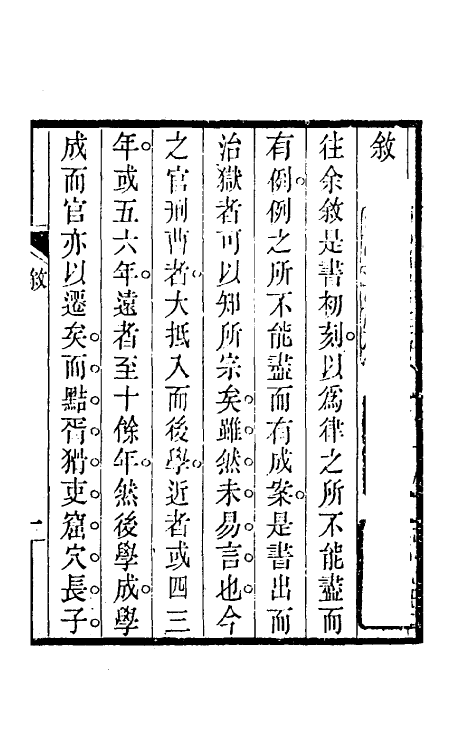 敘
往余敘是書初刻。以爲律之所不能盡而
有例。例之所不能盡而有成案。是書出而
治獄者可以知所宗矣。雖然。未易言也。今
之官刑曹者。大抵入而後學。近者或四三
年。或五六年。遠者至十餘年。然後學成。學
成而官亦以遷矣。而黠胥猾吏。窟穴長子
敘
一